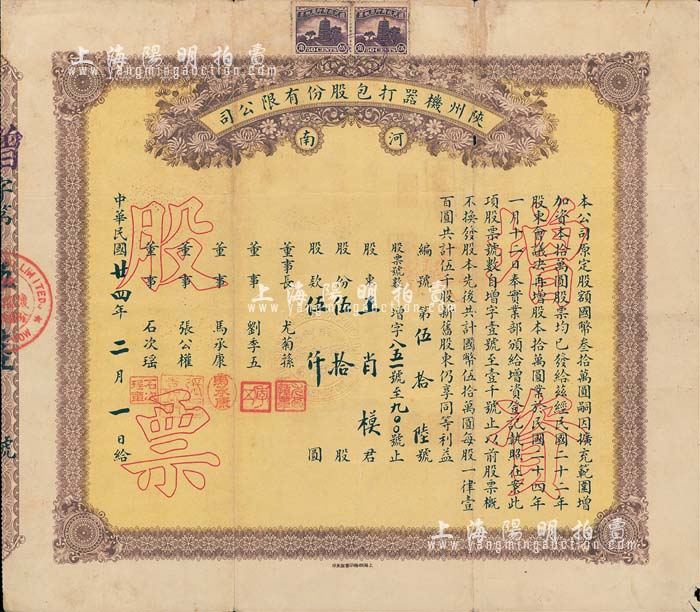 陝州機器打包股份有限公司
河南
本公司原定股額國幣叁拾萬圓嗣因擴充範圍增
加資本拾萬圓股票均已發給茲經民國二十二年
股東會議決再增股本拾萬圓業於民國二十四年
一月十二日奉實業部頒給增資登記執照在案此
項股票號數自增字壹號至壹千號止以前股票概
不換發股本先後共計國幣伍拾萬圓每股一律壹
百圓共計伍千股新舊股東仍享同等利益
編號第伍拾陸號
股票號數增字八五一號至九〇〇號止
股東王肖模君
股份伍拾股
股款伍仟圓
董事長 尤菊蓀
董事 劉季五
董事 馬承康
董事 張公權
董事 石次瑤
中華民國廿四年二月一日給
增資
股票
50 CENTS
50 CENTS
上海陽明拍賣
www.yangmingauction.com
上海陽明拍賣
www.yangmingauction.com
上海陽明拍賣
www.yangmingauction.com
LIMITED